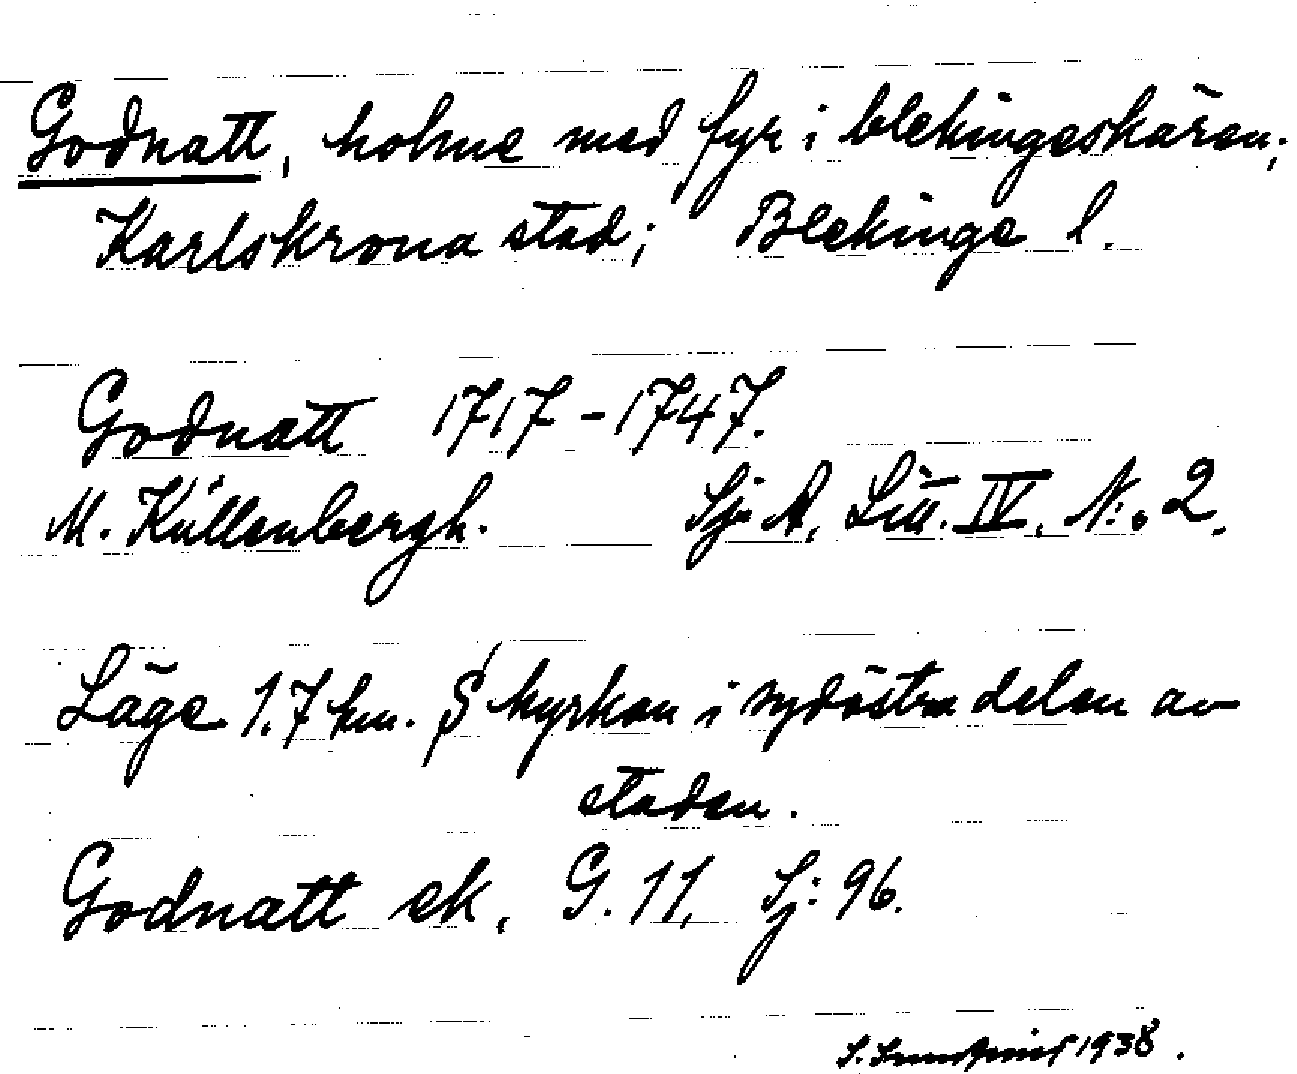 Godnatt, holme med fyr i blekingeskären;
Karlskrona stad; Blekinge l.
Godnatt 1717-1747.
M. Küllenbergh. Sj. A, Litt. IV. N:o 2.
Läge 1.7 km. S kyrkan i sydöstra delen av
staden.
Godnatt ek. G. 11, Sj: 96.
S. 1938.